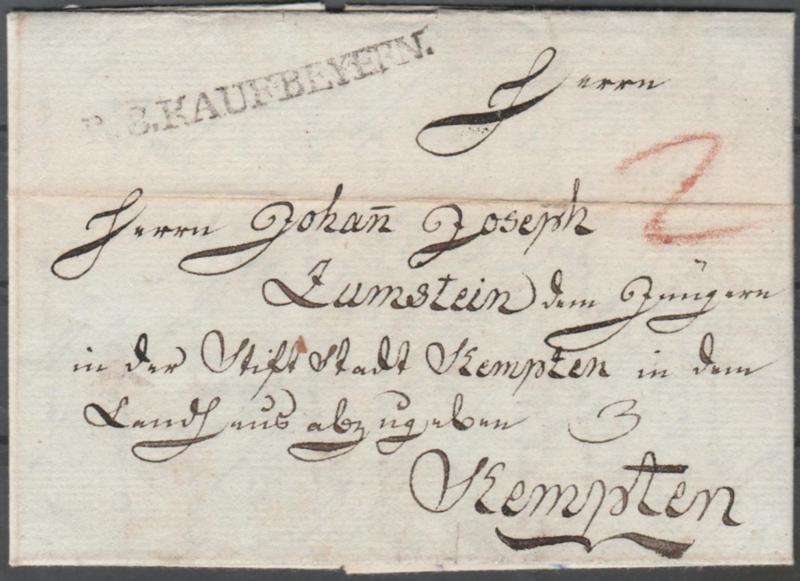 R. 3. KAUFBEYERN.
Herrn
2
Herrn Johan̄ Joseph
Zumstein dem Jüngern
in der Stift Stadt Kempten in dem
Landhaus abzugeben
Kempten